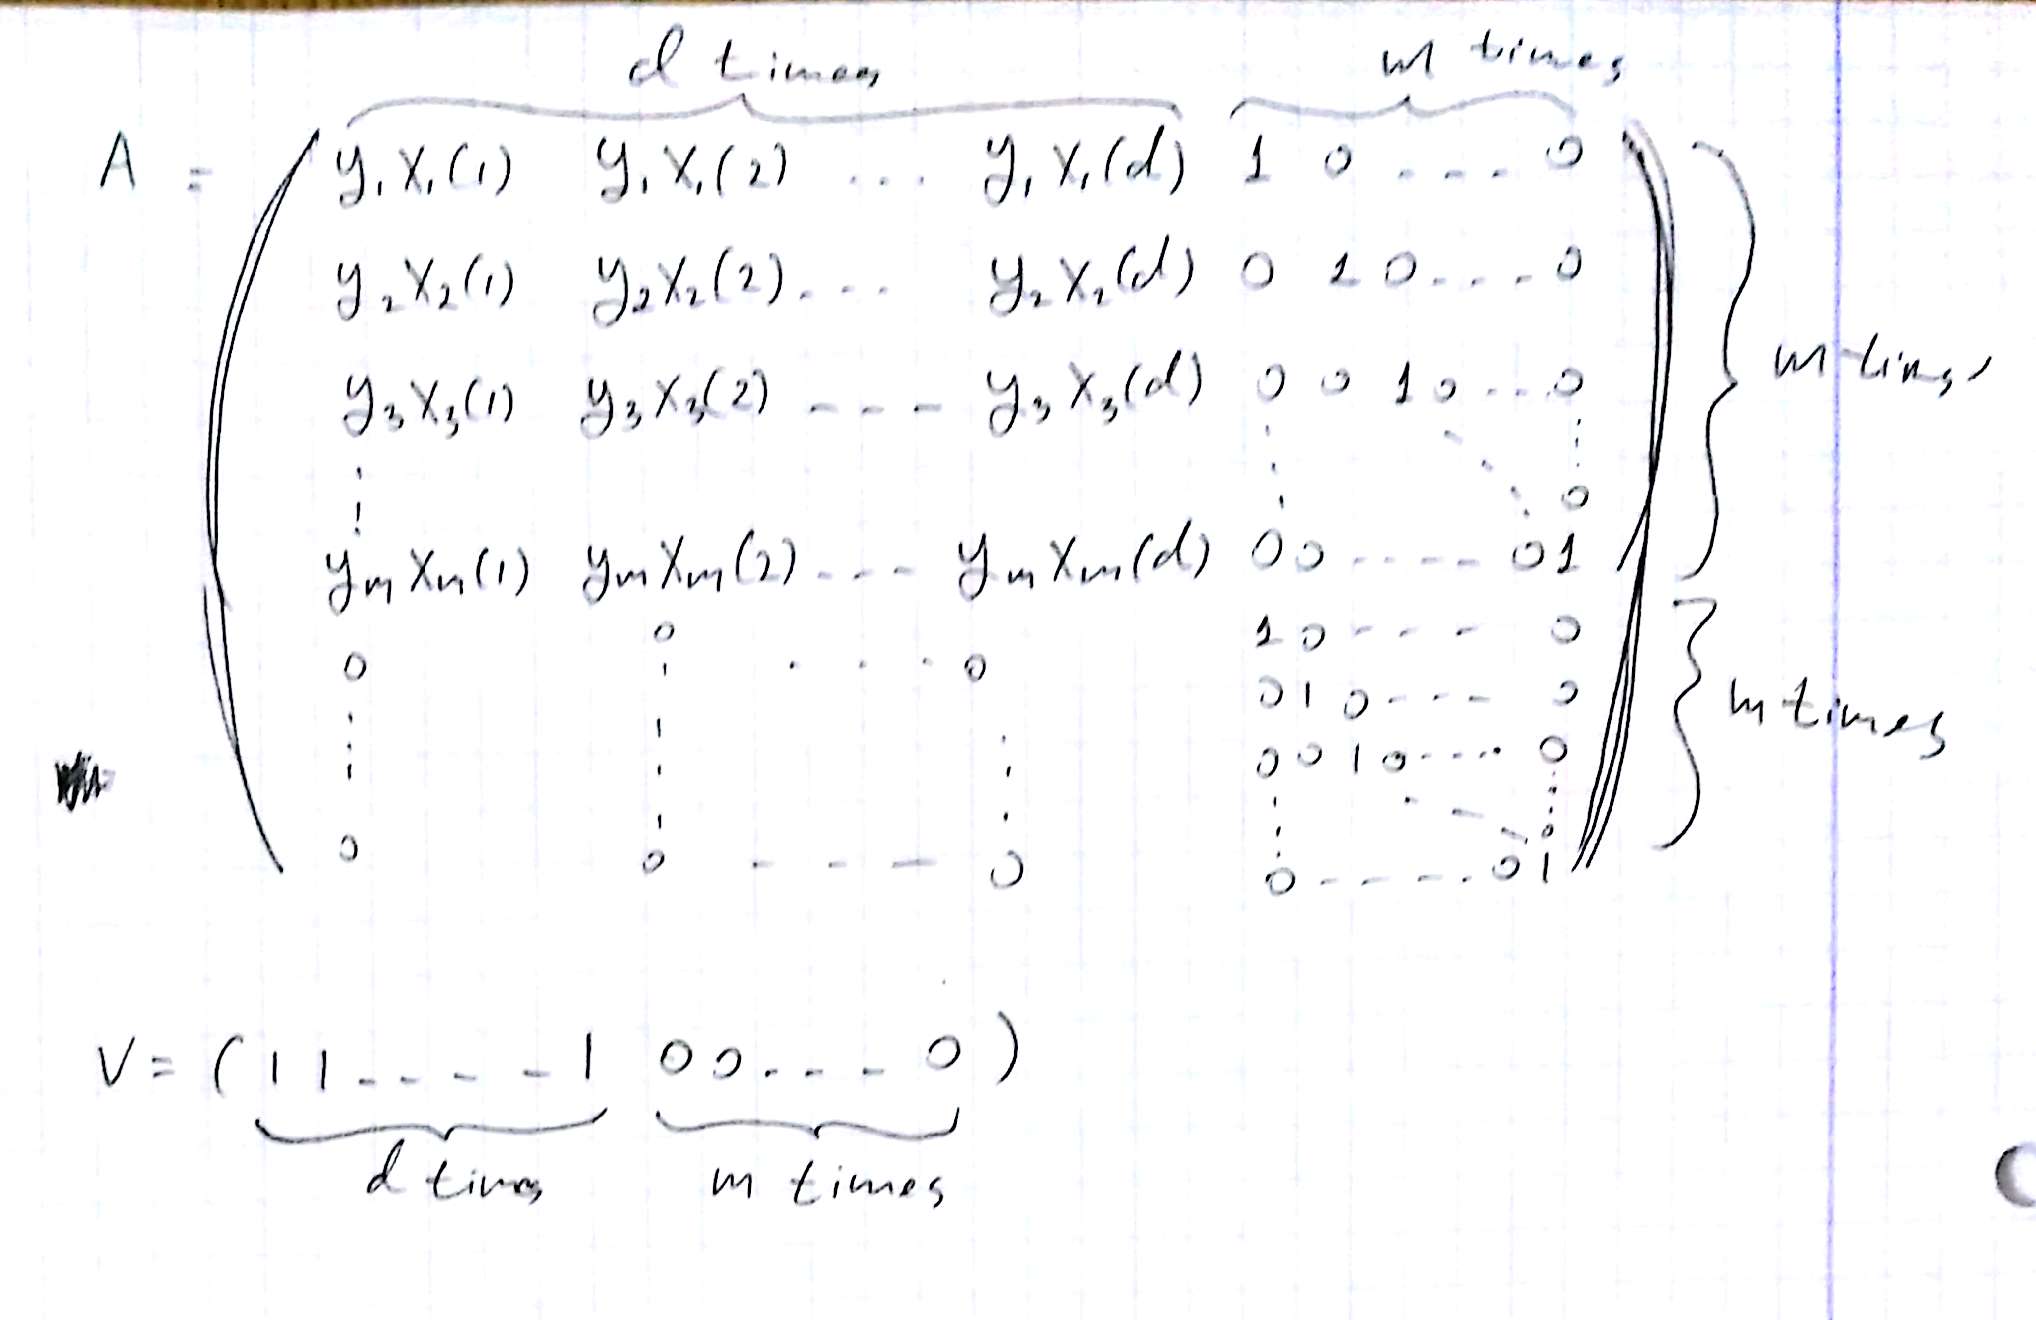 d times m times
A = y₁x₁(1) y₁x₁(2) ... y₁x₁(d) 1 0 ... 0
y₂x₂(1) y₂x₂(2) ... y₂x₂(d) 0 1 0 ... 0
m times
y₃x₃(1) y₃x₃(2) --- y₃x₃(d) 0 0 1 0 ... 0
0
yₘxₘ(1) yₘxₘ(2) --- yₘxₘ(d) 0 0 ---- 0 1
0 1 0 --- 0
0 ... 0
0 1 0 --- 0 m times
0 0 1 0 ---- 0
0
0 0 --- 0 0 ---- 0 1
V = ( 1 1 ---- 1 0 0 ---- 0 )
d times m times